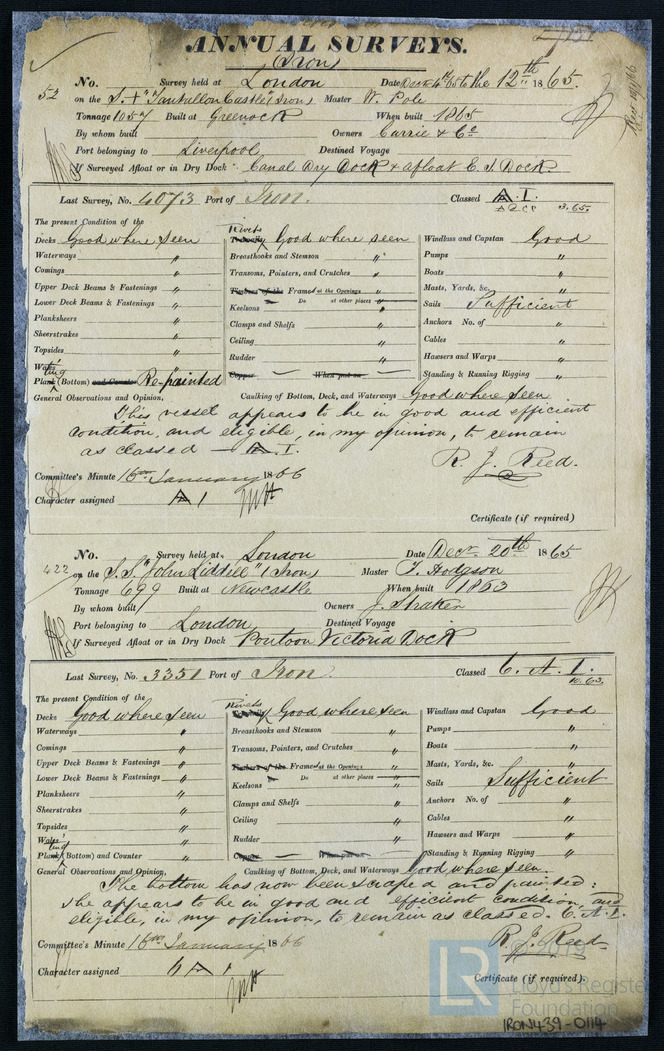 ANNUAL SURVEYS.
(Iron)
No. Survey held at London Date Decr 4th 65 to the 12th 1865.
52 on the S. + "Tantallon Castle" (Iron) Master W. Pole
Tonnage 1057 Built at Greenock When built 1865
By whom built Owners Currie & Co
Port belonging to Liverpool Destined Voyage
If Surveyed Afloat or in Dry Dock Canal Dry Dock & afloat E. I. Dock.
Last Survey, No. 4073 Port of Iron. Classed A. I.
A & C P 3.65.
The present Condition of the
Decks Good where seen
Waterways "
Comings "
Upper Deck Beams & Fastenings "
Lower Deck Beams & Fastenings "
Planksheers "
Sheerstrakes "
Topsides "
Wales "
Plating (Bottom) and Counter Re-painted
Rivets Good where seen
Breasthooks and Stemson "
Transoms, Pointers, and Crutches "
Timbers of the Frame at the Openings "
Do at other places
Keelsons "
Clamps and Shelfs "
Ceiling "
Rudder "
Copper When put on
Windlass and Capstan Good
Pumps "
Boats "
Masts, Yards, &c. "
Sails Sufficient
Anchors No. of "
Cables "
Hawsers and Warps "
Standing & Running Rigging "
General Observations and Opinion, Caulking of Bottom, Deck, and Waterways Good where seen
This vessel appears to be in good and efficient
condition, and eligible, in my opinion, to remain
as classed — A. I.
R. J. Reed.
Committee's Minute 16th January 1866
Character assigned A 1
Certificate (if required)
No. Survey held at London Date Decr 20th 1865
422 on the S.S. "John Liddell" (Iron) Master T. Hodgson
Tonnage 699 Built at Newcastle When built 1863
By whom built Owners J. Straker
Port belonging to London Destined Voyage
If Surveyed Afloat or in Dry Dock Pontoon Victoria Dock
Last Survey, No. 3351 Port of Iron. Classed 6. A. I.
10.63.
The present Condition of the
Decks Good where seen
Waterways "
Comings "
Upper Deck Beams & Fastenings "
Lower Deck Beams & Fastenings "
Planksheers "
Sheerstrakes "
Topsides "
Wales "
Plating (Bottom) and Counter "
Rivets Good where seen
Breasthooks and Stemson "
Transoms, Pointers, and Crutches "
Timbers of the Frame at the Openings "
Do at other places
Keelsons "
Clamps and Shelfs "
Ceiling "
Rudder "
Copper When put on
Windlass and Capstan Good
Pumps "
Boats "
Masts, Yards, &c. "
Sails Sufficient
Anchors No. of "
Cables "
Hawsers and Warps "
Standing & Running Rigging "
General Observations and Opinion, Caulking of Bottom, Deck, and Waterways Good where seen.
The bottom has now been scraped and painted:
she appears to be in good and efficient condition, and
eligible, in my opinion, to remain as classed. 6. A. I.
R. J. Reed
Committee's Minute 16th January 1866
Character assigned 6 A 1
Certificate (if required)
LR Lloyd's Register
Foundation
IRON439-0114